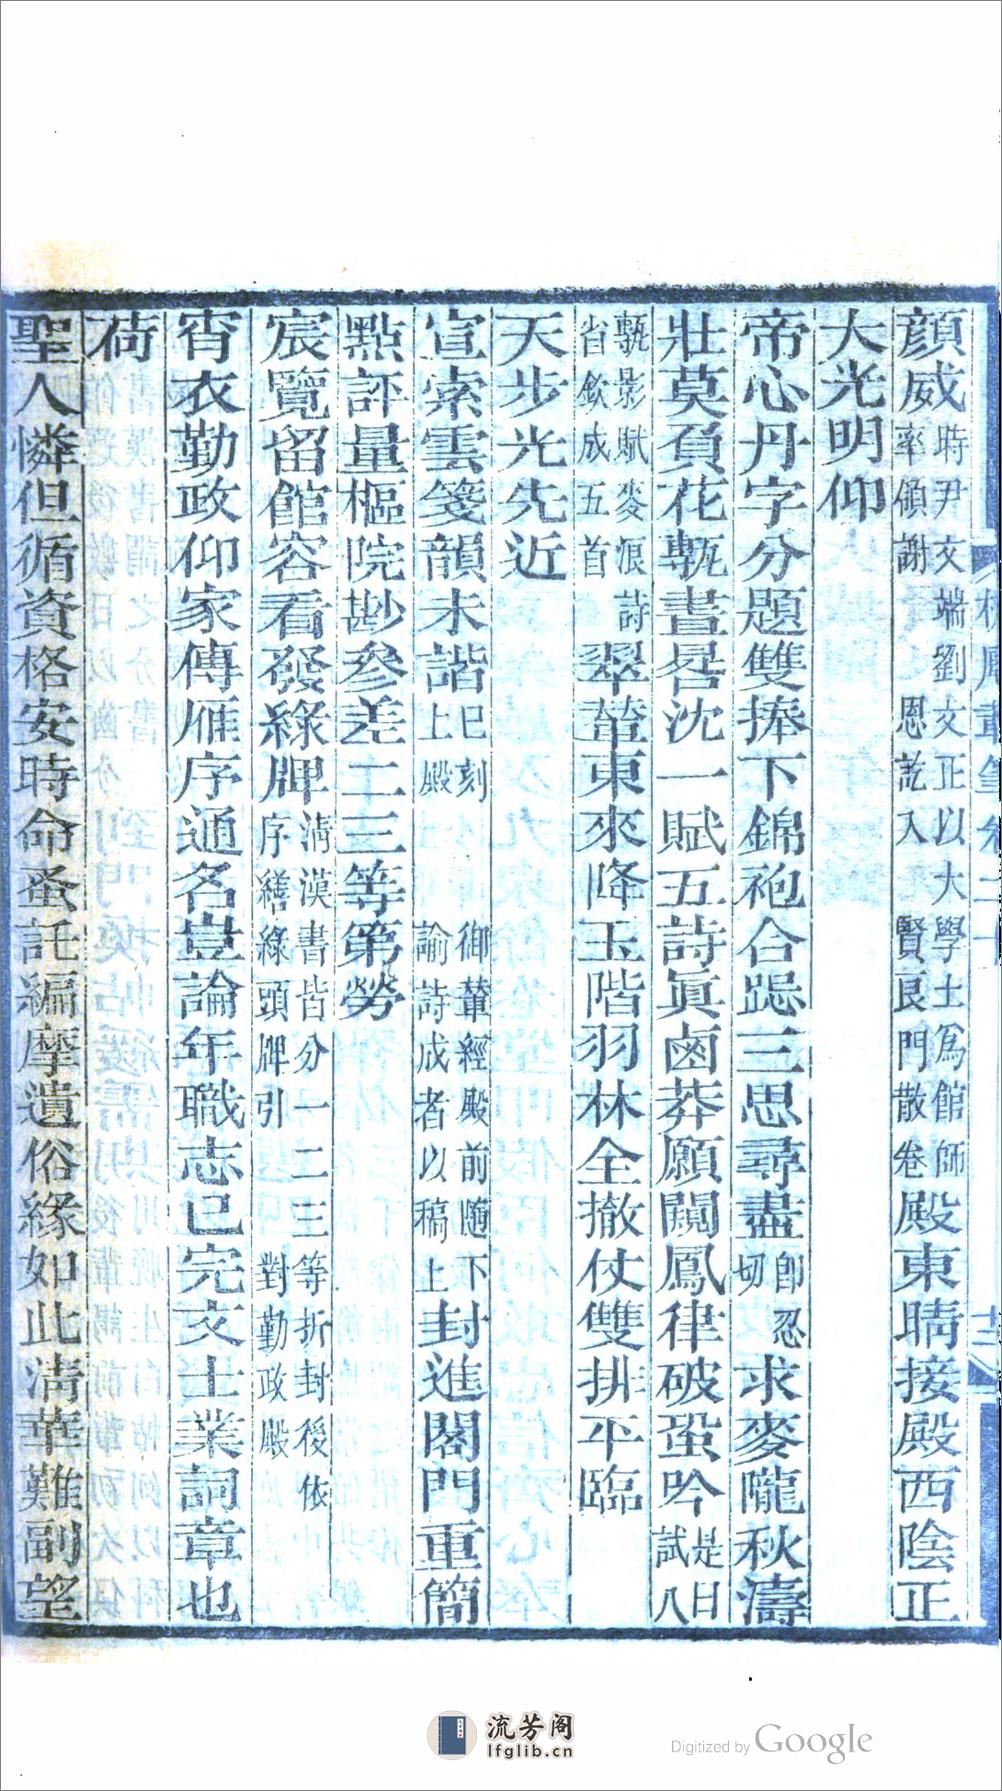 顏威時尹文端劉文正以大學士爲館師率領謝恩訖入賢良門散卷殿東晴接殿西陰正
大光明仰
帝心丹字分題雙捧下錦袍合跽三思尋盡即忍切求麥隴秋濤
壯莫負花甎晝晷沈一賦五詩眞鹵莽願闚鳳律破蛩吟是日試八
甎影賦麥浪詩省欽成五首翠輦東來降玉階羽林全撤仗雙排平臨
天步光先近
宣索雲箋韻未諧巳刻上殿御輦經殿前隨下諭詩成者以稿上封進閣門重簡
點評量樞院尠參差二三等第勞
宸覽留館容看發綠牌清漢書皆分一二三等折封後依序繕綠頭牌引對勤政殿
宵衣勤政仰家傳雁序通名豈論年職志已完文士業詞章也
荷
聖人憐但循資格安時命蚤託編摩遺俗緣如此清華難副望
流芳阁
lfglib.cn
Digitized by Google